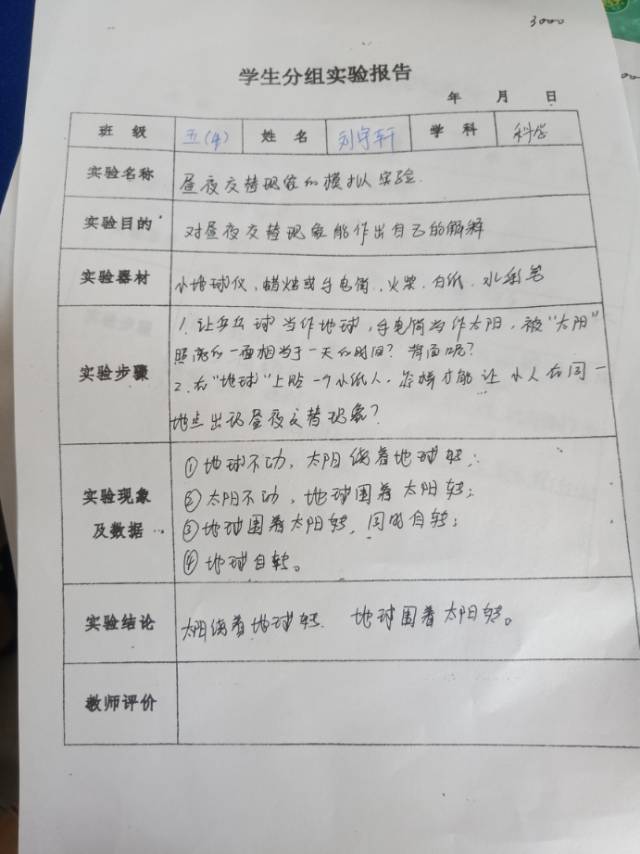 3000
学生分组实验报告
年 月 日
班 级 五(4) 姓 名 刘宇轩 学 科 科学
实验名称 昼夜交替现象的模拟实验.
实验目的 对昼夜交替现象能作出自己的解释
实验器材 小地球仪、蜡烛或手电筒、火柴、白纸、水彩笔
实验步骤
1. 让乒乓球当作地球,手电筒当作太阳,被“太阳”
照亮的一面相当于一天的时间?背面呢?
2. 在“地球”上贴一个小纸人,怎样才能让小人在同一
地点出现昼夜交替现象?
实验现象
及数据
①地球不动,太阳绕着地球转;
②太阳不动,地球围着太阳转;
③地球围着太阳转,同时自转;
④地球自转。
实验结论 太阳绕着地球转、地球围着太阳转。
教师评价